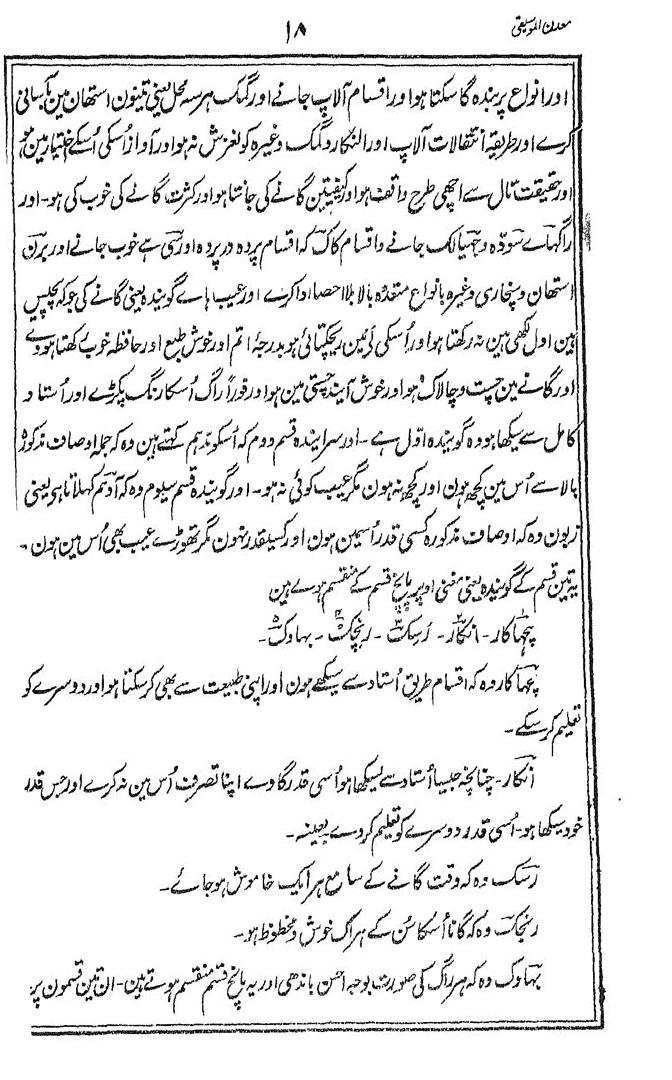 معدن الموسیقی
۱۸
اور انواع پر بندہ گا سکتا ہو اور اقسام آلاپ جانے اور گمک ہر سہ محل یعنی تینون استھان مین بآسانی
کرے اور طریقہ انتقالات آلاپ اور النکار و گمک وغیرہ کو لغزش نہ ہو اور آواز اُسکی اُسکے اختیار مین ہو
اور حقیقت تال سے اچھی طرح واقف ہو اور کیفیتین گانے کی جانتا ہو اور کثرت گانے کی خوب کی ہو۔ اور
راگہاے سودہ و چھیالک جانے و اقسام کاک کہ اقسام پردہ در پردہ اور سی ہے خوب جانے اور برن
استھان و سنچاری وغیرہ بانواع متعددہ بالا بلا احصا ادا کرے اور عیب ہاے گویندہ یعنی گانے کی جو کہ پچیس
ہین اول لکھی ہین نہ رکھتا ہو اور اُسکی لَے مین یکتائی ہو بدرجۂ اتم اور خوش طبع اور حافظہ خوب رکھتا ہووے
اور گانے مین چست و چالاک ہو اور خوش آیند چستی مین ہو اور فوراً راگ اُسکا رنگ پکڑے اور اُستاد
کامل سے سیکھا ہو وہ گویندہ اوّل ہے۔ اور سرایندہ قسم دوم کہ اُسکو مدھم کہتے ہین وہ کہ جملہ اوصاف مذکورۂ
بالا سے اُس مین کچھ ہون اور کچھ نہ ہون مگر عیب کوئی نہ ہو۔ اور گویندہ قسم سیوم وہ کہ آدہم کہلاتا ہی یعنی
زبون وہ کہ اوصاف مذکورہ کسی قدر اُسمین ہون اور کسیقدر نہون مگر تھوڑے عیب بھی اُس مین ہون۔
یہ تین قسم کے گویندہ یعنی مغنی اوپر پانچ قسم کے منقسم ہوے ہین
پچھاکار۔ انکار۔ رسک۔ رنجک۔ بہاوک۔
پچھاکار وہ کہ اقسام طریق اُستاد سے سیکھے ہون اور اپنی طبیعت سے بھی کر سکتا ہو اور دوسرے کو
تعلیم کر سکے۔
انکار۔ چنانچہ جیسا اُستاد سے سیکھا ہو اُسی قدر گا دے اپنا تصرف اُس مین نہ کرے اور جس قدر
خود سیکھا ہو۔ اُسی قدر دوسرے کو تعلیم کر دے بعینہ۔
رسک وہ کہ وقت گانے کے سامع ہر ایک خاموش ہو جائے۔
رنجک وہ کہ گانا اُسکا سُن کے ہر اک خوش و محظوظ ہو۔
بہاوک وہ کہ ہر راگ کی صورت بوجہ احسن باندھی اور یہ پانچ قسم منقسم ہوتے ہین۔ ان تین قسمون پر